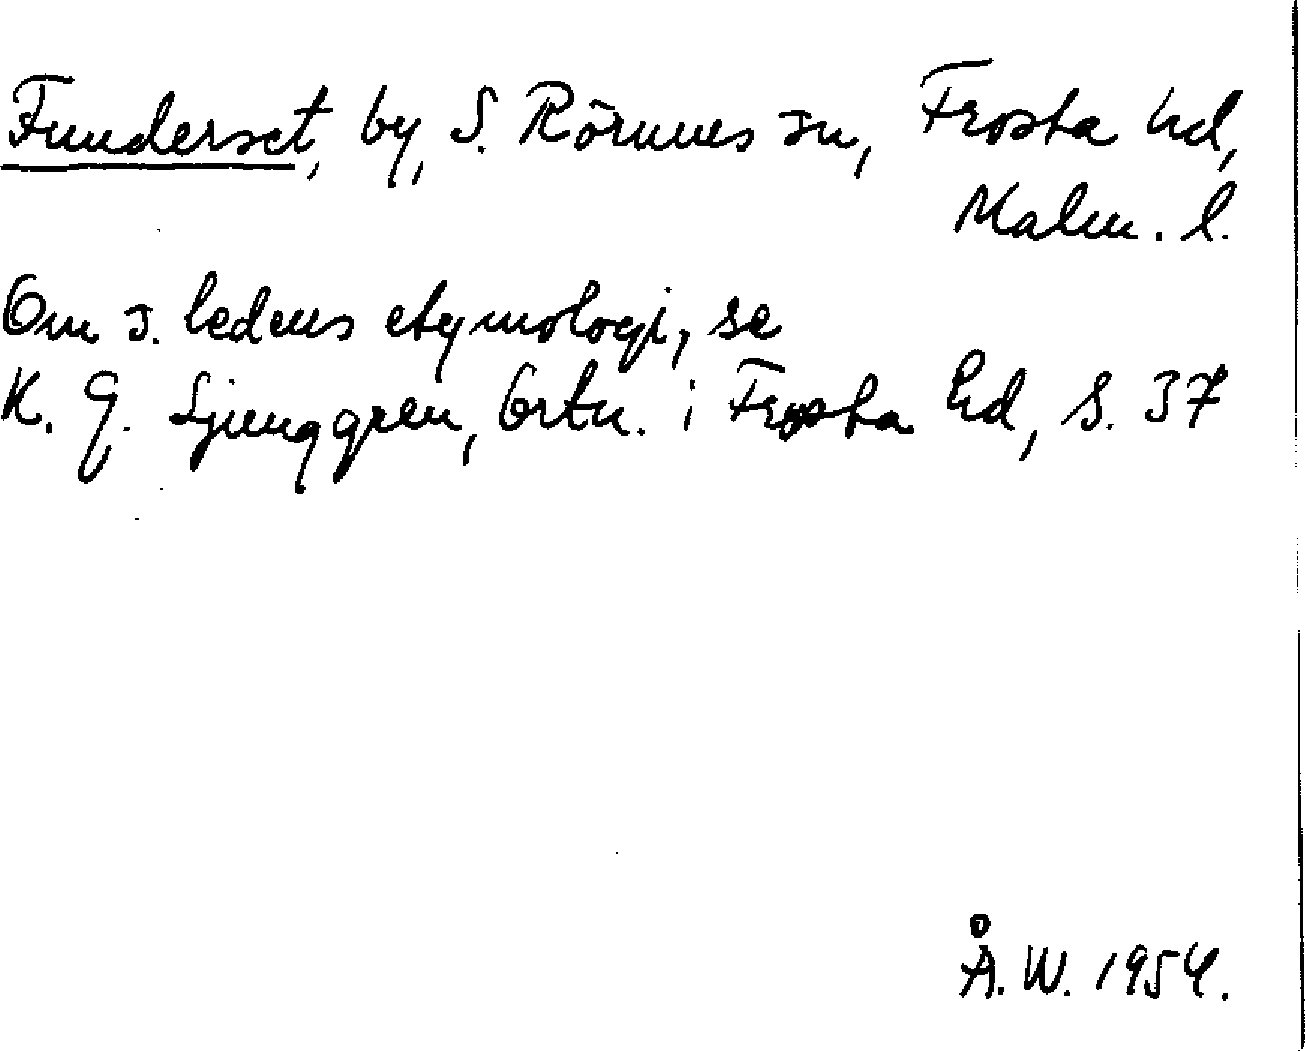 Funderset, by, S. Rörums sn, Frosta hd,
Malm. l.
Om s. ledens etymologi, se
K. G. Ljunggren, Ortn. i Frosta hd, s. 37
Å. W. 1954.